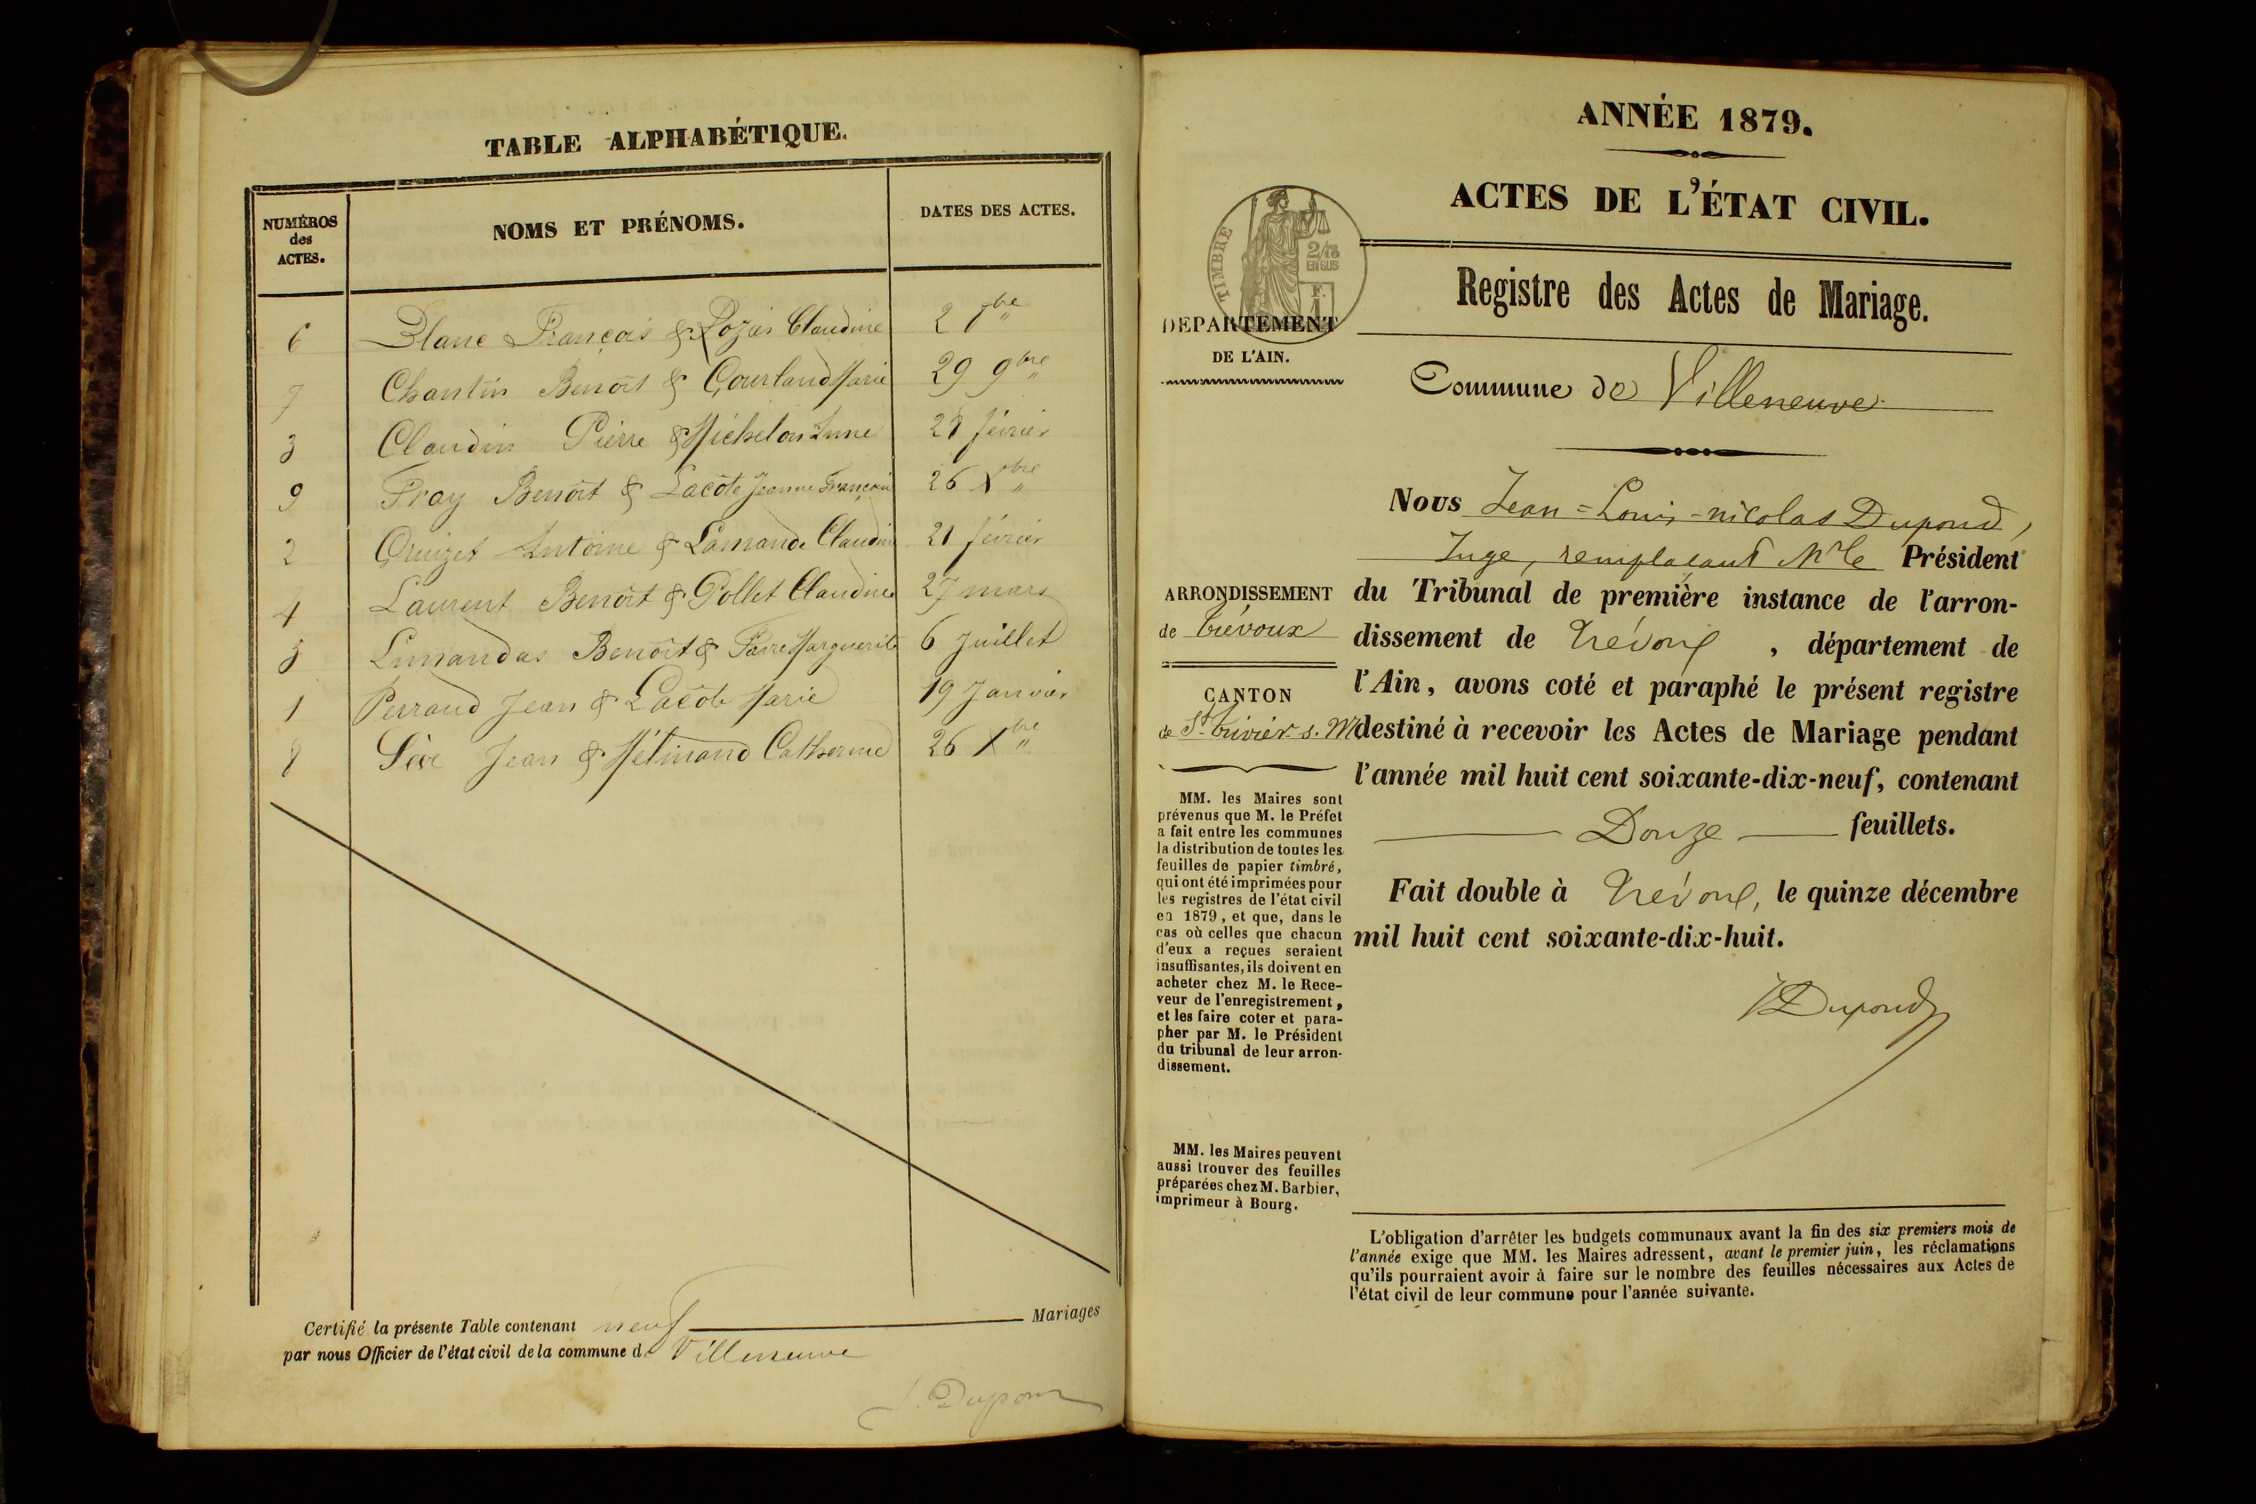 TABLE ALPHABÉTIQUE.
NUMÉROS
des
ACTES.
NOMS ET PRÉNOMS.
DATES DES ACTES.
6 Blanc François & Claudine 2
7 Chantin Benoît & Gourland Marie 29 9bre "
3 Claudin Pierre & Michelon Anne février
9 Fray Benoît & Lacôte Jeanne 26 Xbre "
2 Antoine & Lamande Claudine 21 février
4 Laurent Benoît & Pollet Claudine 27 mars
5 Limandas Benoît & Marguerite 6 Juillet
1 Perraud Jean & Lacôte Marie 19 Janvier
8 Sève Jean & Métinand Catherine 26 Xbre "
Certifié la présente Table contenant neuf Mariages
par nous Officier de l'état civil de la commune de Villeneuve
ANNÉE 1879.
ACTES DE L'ÉTAT CIVIL.
TIMBRE
2/10
EN SUS
F.
1
Registre des Actes de Mariage.
DEPARTEMENT
DE L'AIN.
Commune de Villeneuve
Nous Jean=Louis-nicolas Dupond,
Juge, remplaçant Mr le Président
ARRONDISSEMENT
de Trévoux
CANTON
de St Trivier s. M
du Tribunal de première instance de l'arron-
dissement de Trévoux, département de
l'Ain, avons coté et paraphé le présent registre
destiné à recevoir les Actes de Mariage pendant
l'année mil huit cent soixante-dix-neuf, contenant
Douze feuillets.
Fait double à Trévoux, le quinze décembre
mil huit cent soixante-dix-huit.
Dupond
MM. les Maires sont
prévenus que M. le Préfet
a fait entre les communes
la distribution de toutes les
feuilles de papier timbré,
qui ont été imprimées pour
les registres de l'état civil
en 1879, et que, dans le
cas où celles que chacun
d'eux a reçues seraient
insuffisantes, ils doivent en
acheter chez M. le Rece-
veur de l'enregistrement,
et les faire coter et para-
pher par M. le Président
du tribunal de leur arron-
dissement.
MM. les Maires peuvent
aussi trouver des feuilles
préparées chez M. Barbier,
imprimeur à Bourg.
L'obligation d'arrêter les budgets communaux avant la fin des six premiers mois de
l'année exige que MM. les Maires adressent, avant le premier juin, les réclamations
qu'ils pourraient avoir à faire sur le nombre des feuilles nécessaires aux Actes de
l'état civil de leur commune pour l'année suivante.